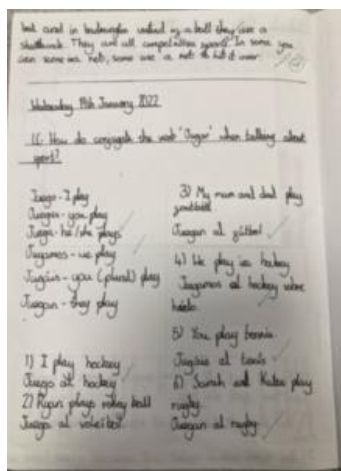 but and in badmington instead of a ball they use a
shuttlecock. They are all competitive sports. In some you
can score in nets, some use a net to hit it over.
Wednesday 19th January 2022
LC: How do conjugate the verb 'Jugar' when talking about
sport?
Juego - I play
Juegas - you play
Juega - he/she plays
Jugamos - we play
Jugáis - you (plural) play
Juegan - they play
1) I play hockey
Juego al hockey
2) Ryan plays volley ball
Juega al voleibol
3) My mum and dad play
football
Juegan al fútbol
4) We play ice hockey
Jugamos al hockey sobre
hielo.
5) You play tennis
al tenis
6) Sarah and Katie play
rugby.
Juegan al rugby